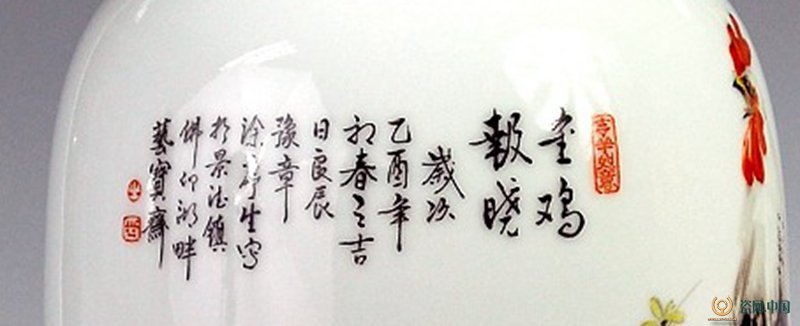 金鸡
報晓
歲次
乙酉年
初春之吉
日良辰
豫章
涂序生写
於景德鎮
佛印湖畔
藝寶齋
瓷网.中国